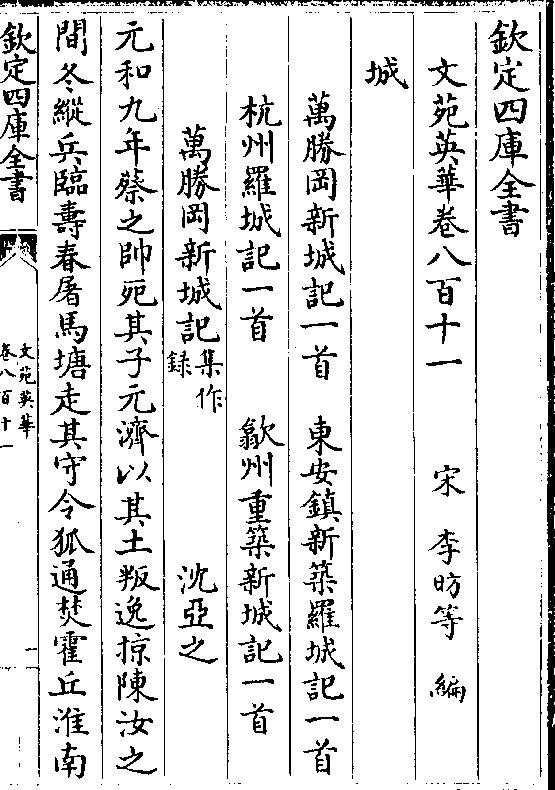 欽定四庫全書
文苑英華卷八百十一　宋　李昉等　編
城
萬勝岡新城記一首　東安鎮新築羅城記一首
杭州羅城記一首　歙州重築新城記一首
萬勝岡新城記集作錄　沈亞之
元和九年蔡之帥死其子元濟以其土叛逸掠陳汝之
間冬縱兵臨壽春屠馬塘走其守令狐通焚霍丘淮南
欽定四庫全書
文苑英華
卷八百十一
一